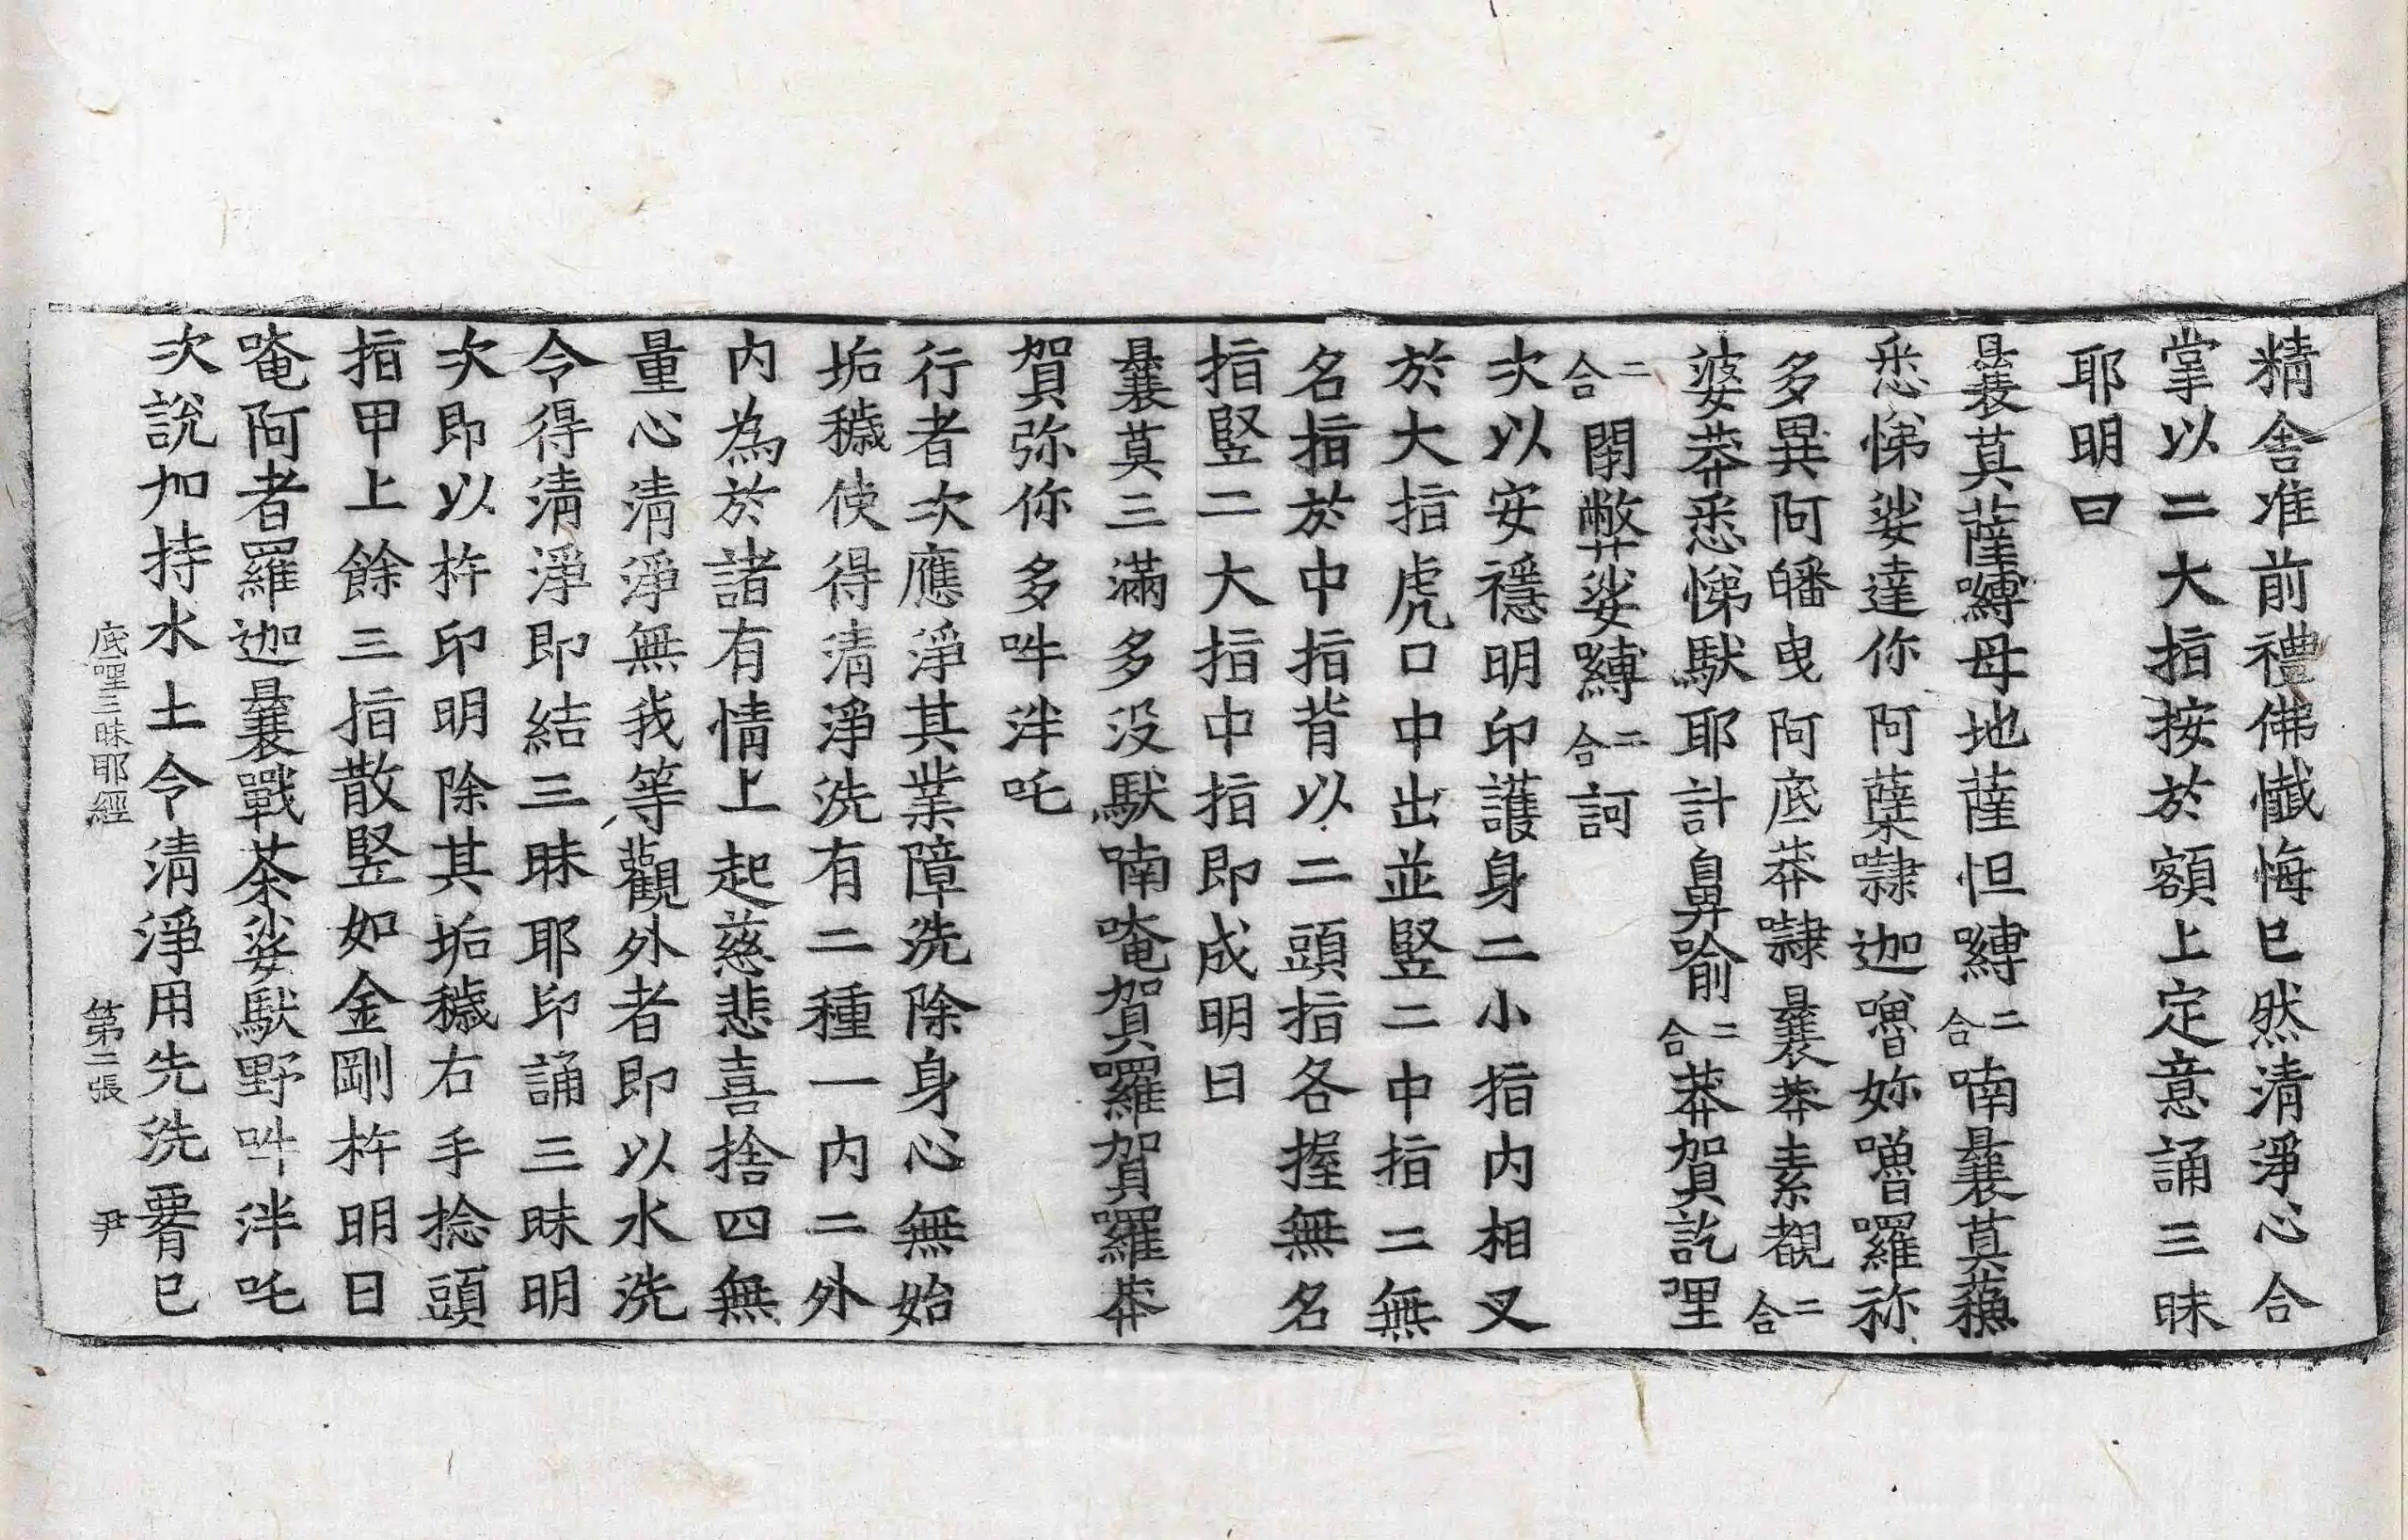 精舍准前禮佛懺悔已然清淨心合
掌以二大指按於額上定意誦三昧
耶明曰
曩莫薩嚩母地薩怛嚩二合喃曩莫蘓
悉悌娑達你阿蘖㘑迦嚕妳嚕囉祢
多異阿皤曳阿底莽㘑曩莽素覩二合
婆莽悉悌馱耶計鼻喻二合莽賀訖哩
二合閉弊娑嚩二合訶
次以安穩明印護身二小指內相叉
於大指虎口中出並竪二中指二無
名指於中指背以二頭指各握無名
指竪二大指中指中指即成明曰
曩莫三滿多没馱喃唵賀囉賀囉莽
賀弥你多吽泮吒
行者次應淨其業障洗除身心無始
垢穢使得清淨洗有二種一內二外
內為於諸有情上起慈悲喜捨四無
量心清淨無我等觀外者即以水洗
令得清淨即結三昧耶印誦三昧明
次即以杵印明除其垢穢右手捻頭
指甲上餘三指散竪如金剛杵明曰
唵阿者羅迦曩戰荼娑馱野吽泮吒
次說加持水土令清淨用先洗𦝫已
底哩三昧耶經　第二張　尹